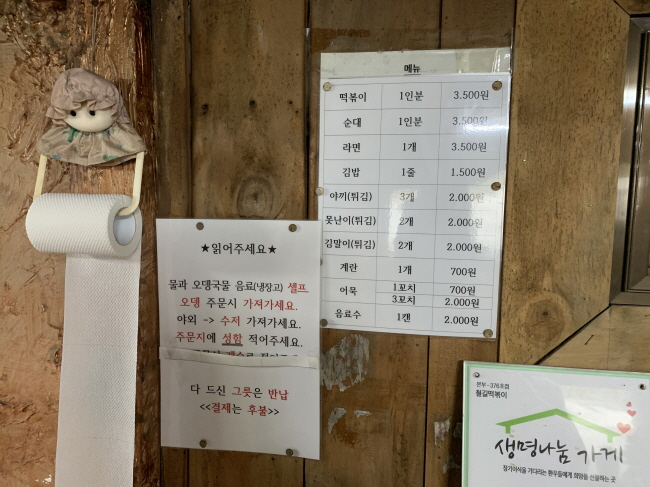 메뉴
떡볶이 1인분 3.500원
순대 1인분 3.500원
라면 1개 3.500원
김밥 1줄 1.500원
야끼(튀김) 3개 2.000원
못난이(튀김) 2개 2.000원
김말이(튀김) 2개 2.000원
계란 1개 700원
어묵 1꼬치 700원
3꼬치 2.000원
음료수 1캔 2.000원
★읽어주세요★
물과 오뎅국물 음료(냉장고) 셀프
오뎅 주문시 가져가세요.
야외 -> 수저 가져가세요.
주문지에 성함 적어주세요.
다 드신 그릇은 반납
<<결제는 후불>>
본부-376호점
철길떡볶이
생명나눔 가게
장기이식을 기다리는 환우들에게 희망을 선물하는 곳